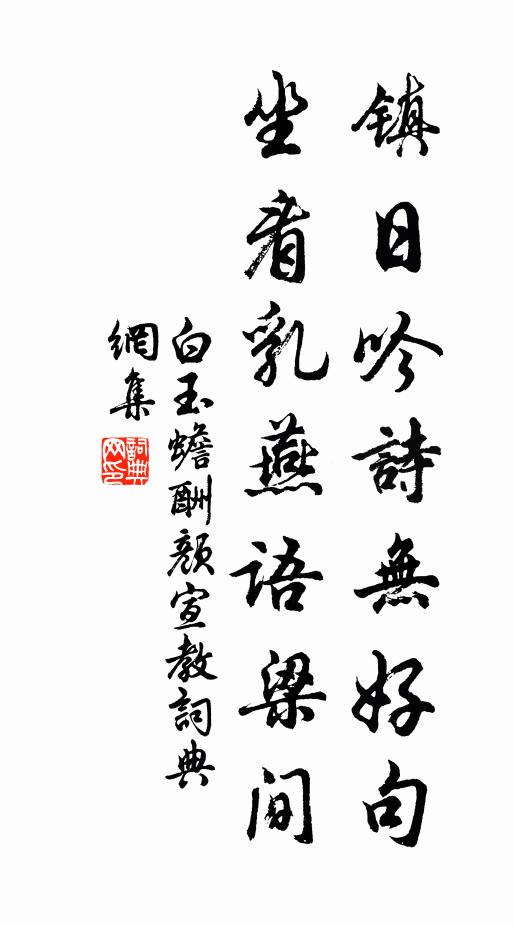 镇日吟詩無好句
坐看乳燕语梁间
白玉蟾酬顏宣教詞典
網集
詞典
网印